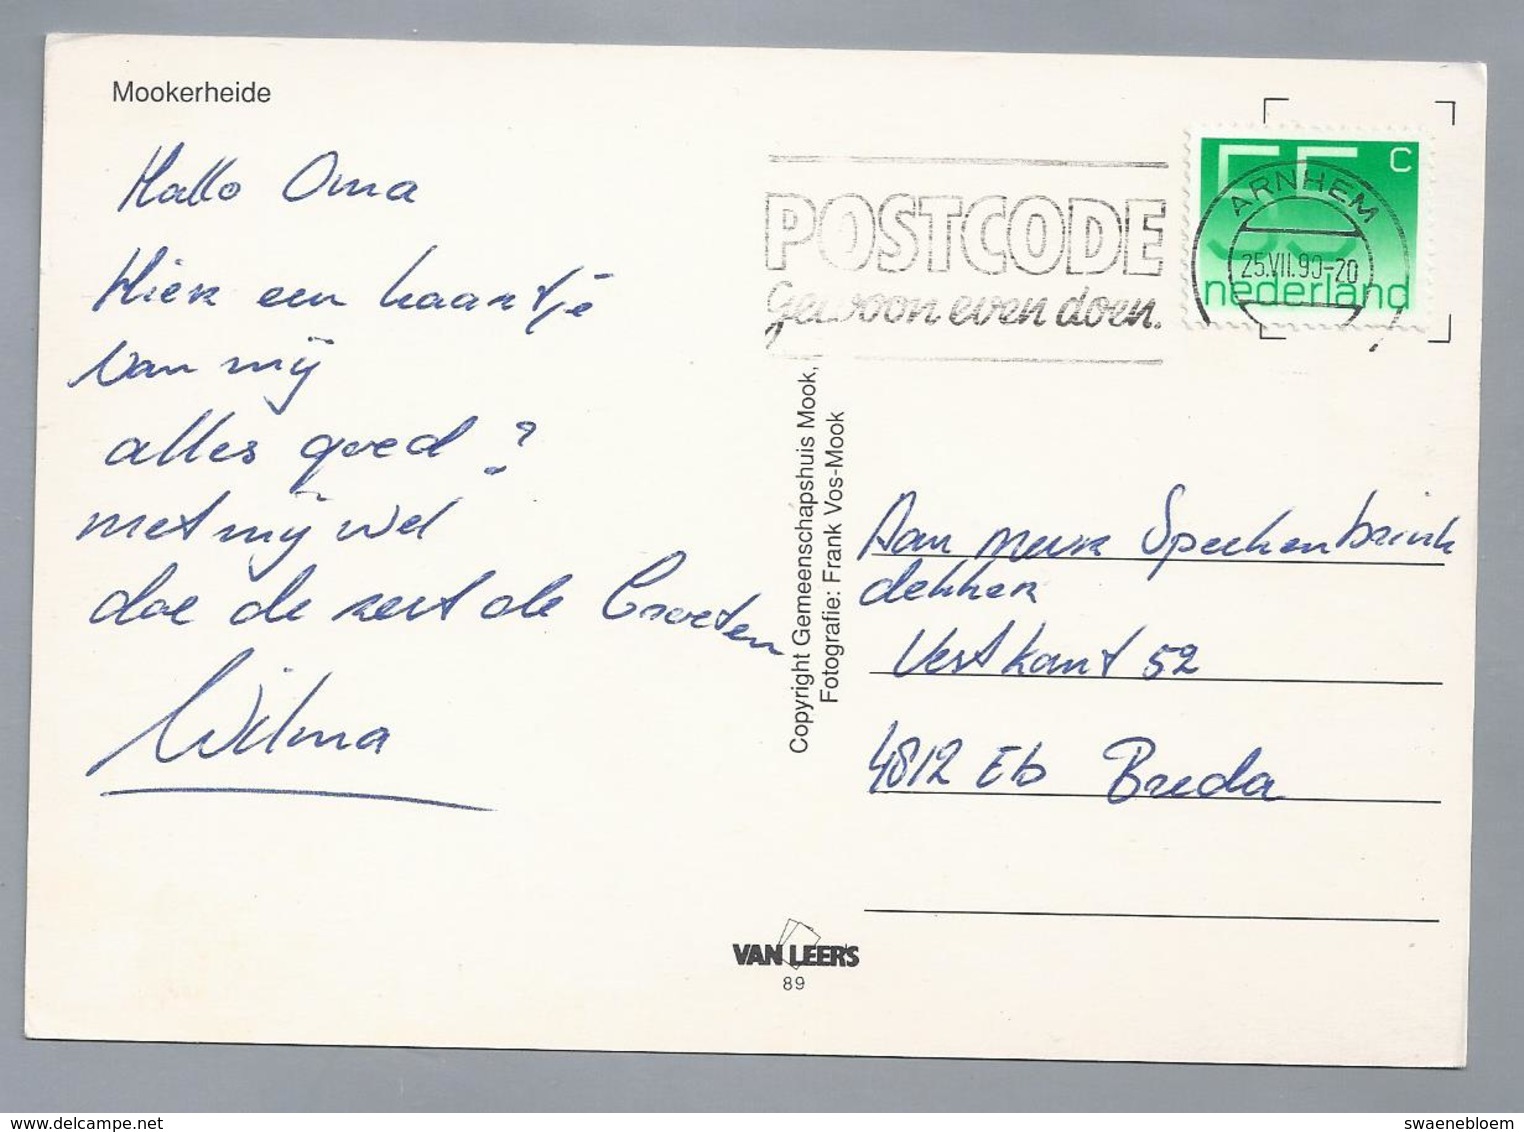 Mookerheide
Hallo Oma
Hier een kaartje
van mij
alles goed?
met mij wel
doe de rest de Groeten
Wilma
POSTCODE
gewoon even doen.
55 c
nederland
ARNHEM
25.VII.90-20
Copyright Gemeenschapshuis Mook,
Fotografie: Frank Vos-Mook
Aan mevr Speekenbrink
dekker
Vestkant 52
4812 Eb Breda
VAN LEER'S
89
www.delcampe.net
swaenebloem